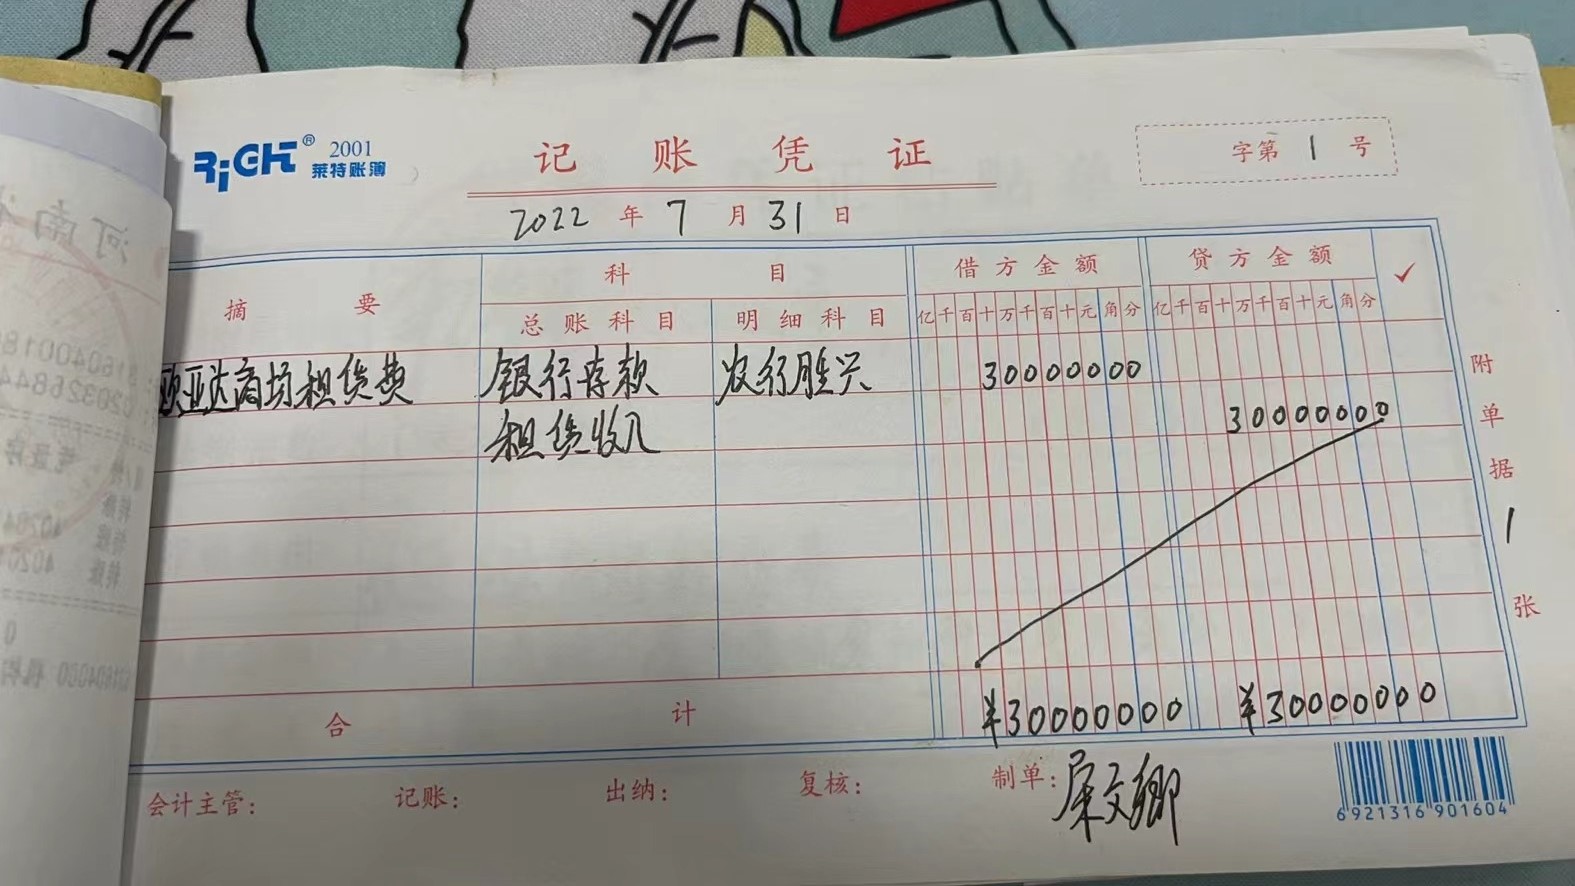 RiGHT® 2001
莱特账簿
记账凭证
字第 1 号
2022 年 7 月 31 日
摘要 科目 借方金额 贷方金额 ✓
总账科目 明细科目 亿千百十万千百十元角分 亿千百十万千百十元角分
欧亚达商场租赁费 银行存款 农行胜兴 30000000
租赁收入 30000000
合计 ¥30000000 ¥30000000
附单据 1 张
会计主管: 记账: 出纳: 复核: 制单: 屈文卿
6921316901604
河南